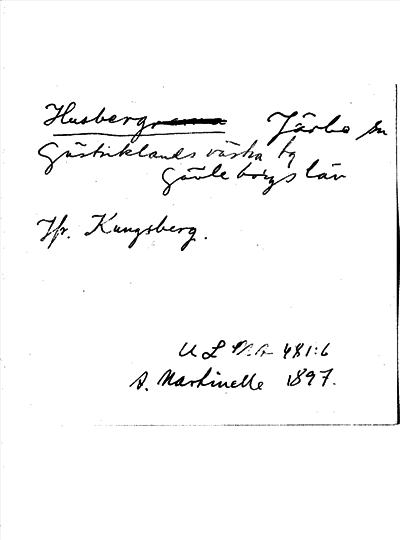 Husberg, Järbo sn
Gästriklands västra tg
Gävleborgs län
Jfr. Kungsberg.
ULMA 481:6
A. Martinelle 1897.